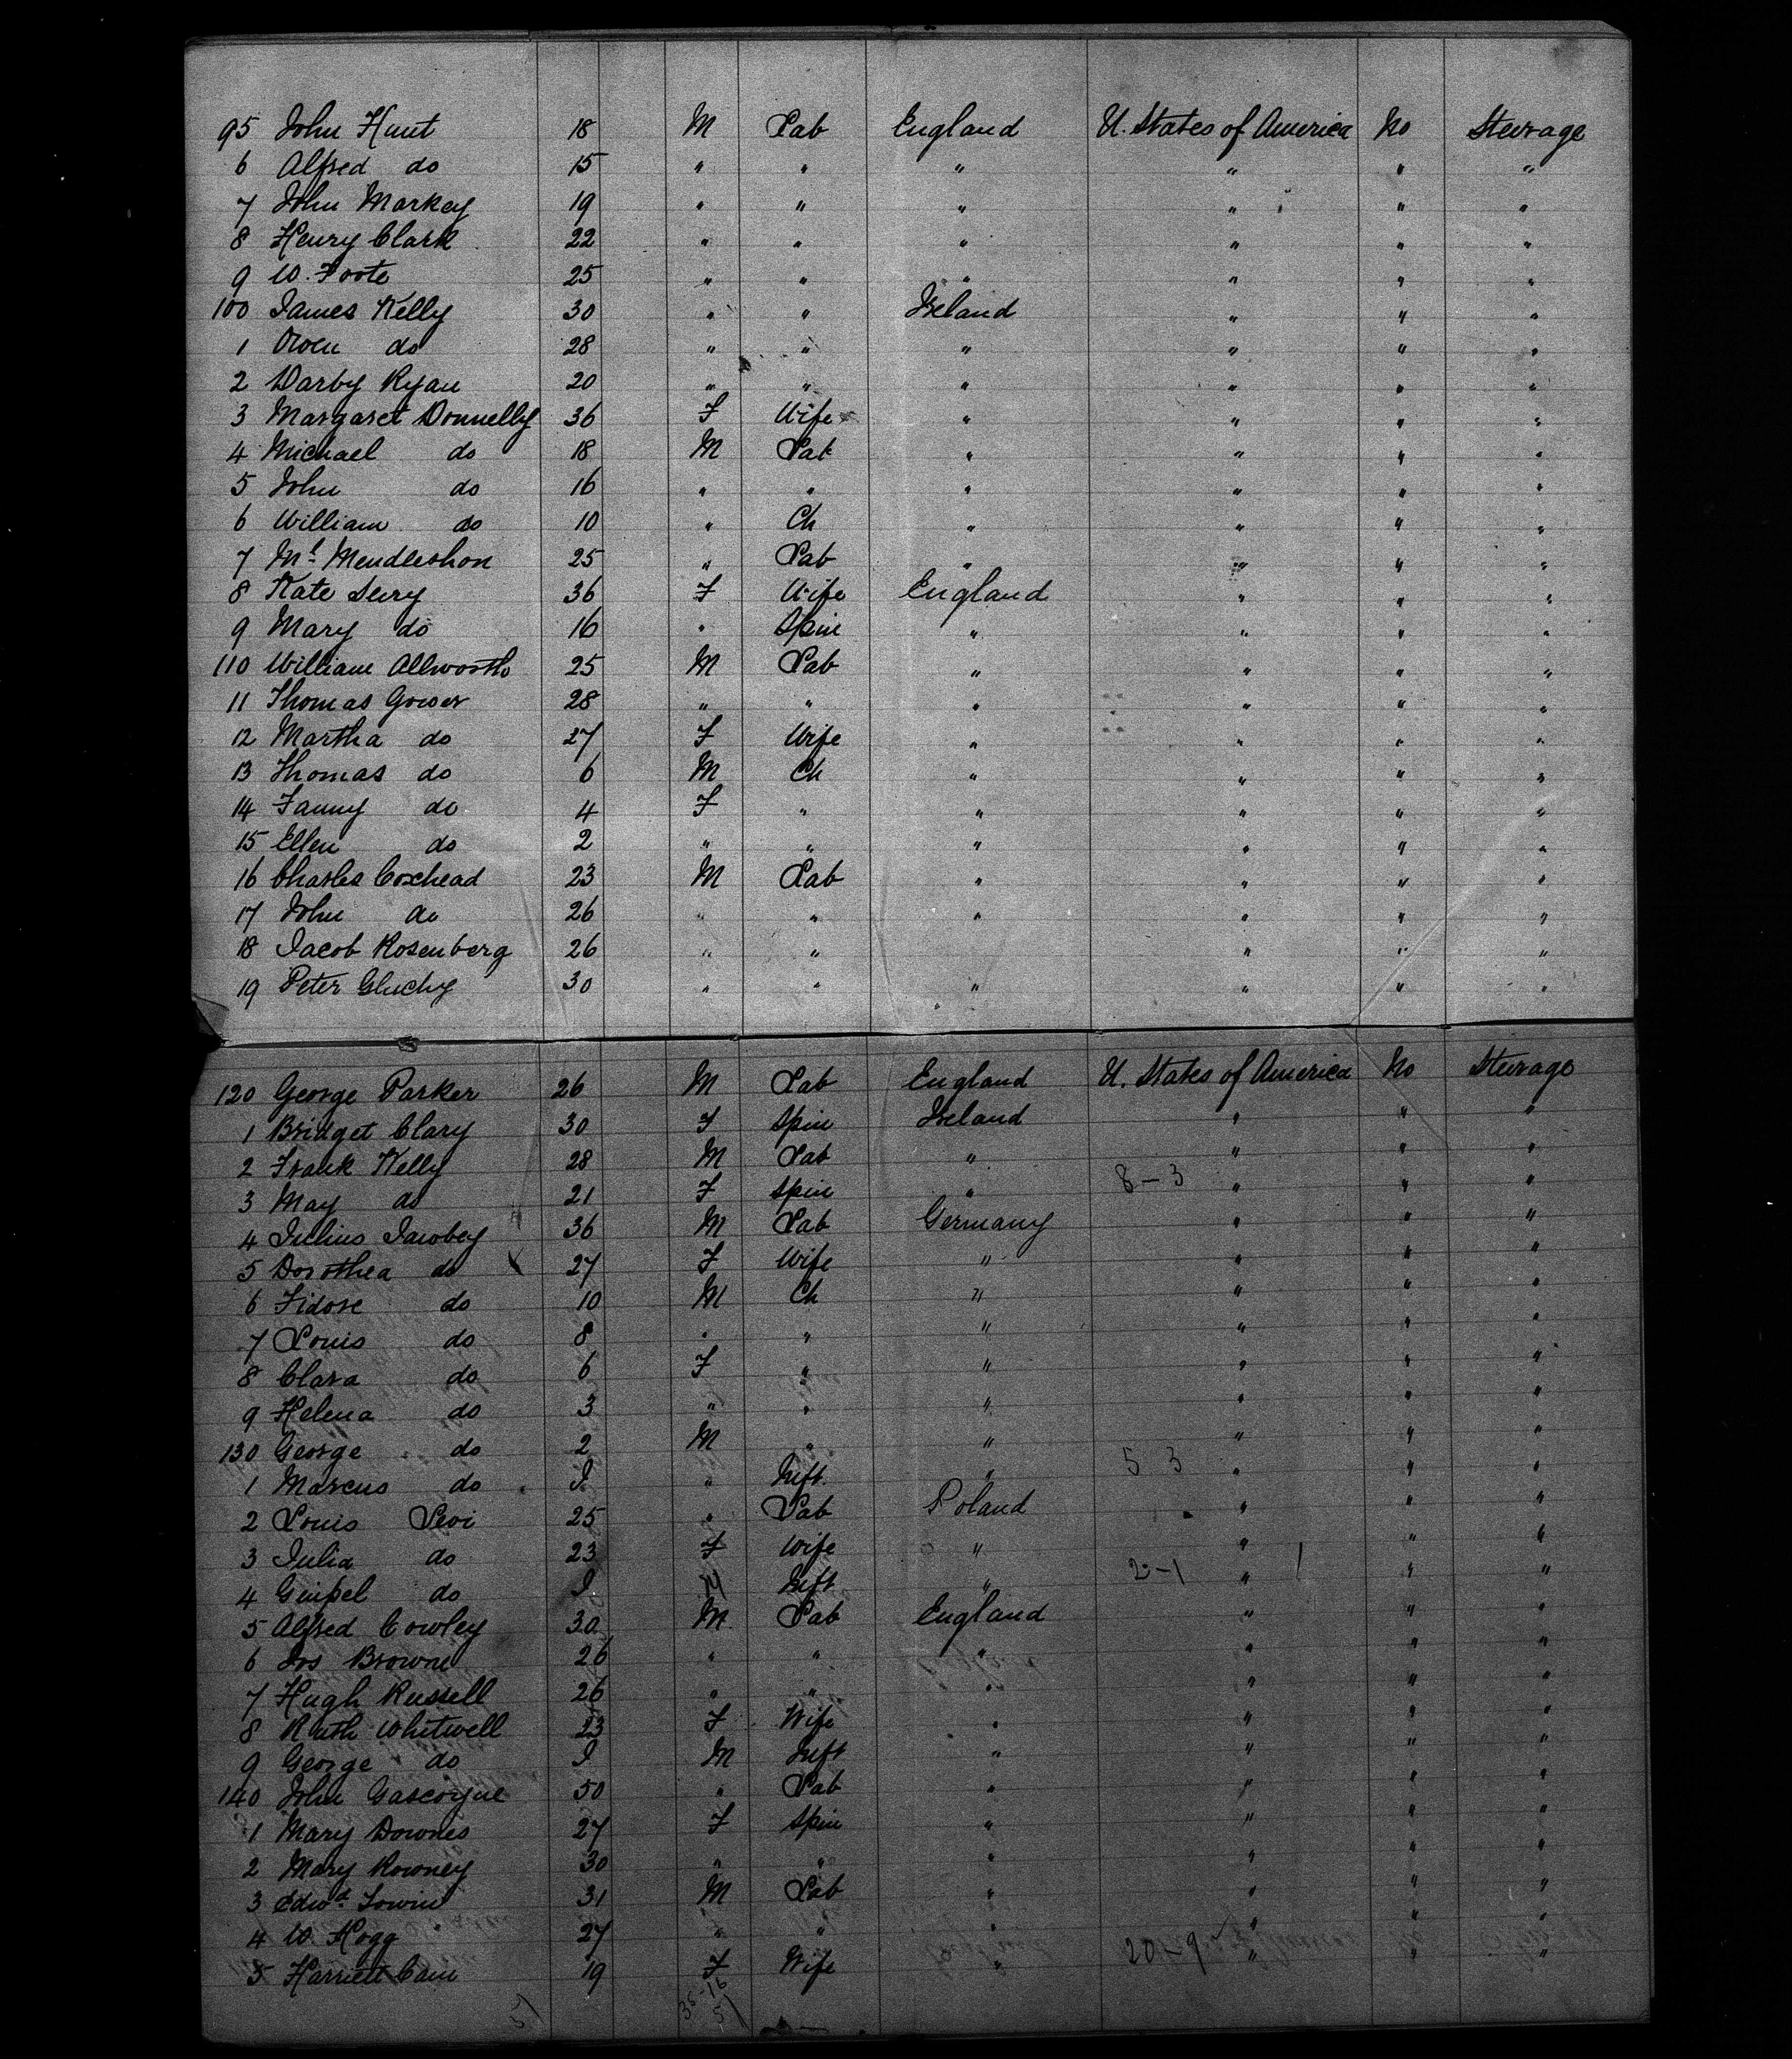 95 John Hunt 18 M Lab England U. States of America No Steerage
6 Alfred do 15 " " " " " "
7 John Markey 19 " " " " " "
8 Henry Clark 22 " " " " " "
9 W. Foote 25 " " " " " "
100 James Kelly 30 " " Ireland " " "
1 Owen do 28 " " " " " "
2 Darby Ryan 20 " " " " " "
3 Margaret Donnelly 36 F Wife " " " "
4 Michael do 18 M Lab " " " "
5 John do 16 " " " " " "
6 William do 10 " Ch " " " "
7 Ml Mendleshon 25 " Lab " " " "
8 Kate 36 F Wife England " " "
9 Mary do 16 " Spin " " " "
110 William Allworth 25 M Lab " " " "
11 Thomas Gower 28 " " " " " "
12 Martha do 27 F Wife " " " "
13 Thomas do 6 M Ch " " " "
14 Fanny do 4 F " " " " "
15 Ellen do 2 " " " " " "
16 Charles Coxhead 23 M Lab " " " "
17 John do 26 " " " " " "
18 Jacob Rosenberg 26 " " " " "
19 Peter Gluchy 30 " " " " " "
120 George Parker 26 M Lab England U. States of America No Steerage
1 Bridget Clary 30 F Spin Ireland " " "
2 Frank Kelly 28 M Lab " " " "
3 May do 21 F Spin " 8-3 " " "
4 Julius Jacobey 36 M Lab Germany " " "
5 Dorothea do 27 F Wife " " " "
6 Fidore do 10 M Ch " " " "
7 Louis do 8 " " " " " "
8 Clara do 6 F " " " " "
9 Helena do 3 " " " " " "
130 George do 2 M " " " " "
1 Marcus do I " Inft " 5 3 " " "
2 Louis Levi 25 " Lab Poland " " "
3 Julia do 23 F Wife " " " "
4 Gimpel do I Inft " 2-1 " " "
5 Alfred Cowley 30 M Lab England " " "
6 Jos Browne 26 " " " " " "
7 Hugh Russell 26 " " " " " "
8 Ruth Whitwell 23 F Wife " " " "
9 George do I M Inft " " " "
140 John Gascoyne 50 " Lab " " " "
1 Mary Downes 27 F Spin " " " "
2 Mary Rowney 30 " " " " " "
3 Edwd. 31 M Lab " " " "
4 W. Hogg 27 " " " " " "
5 Harriett Cam 19 F Wife " 20-9 " " "
51 35-16
51